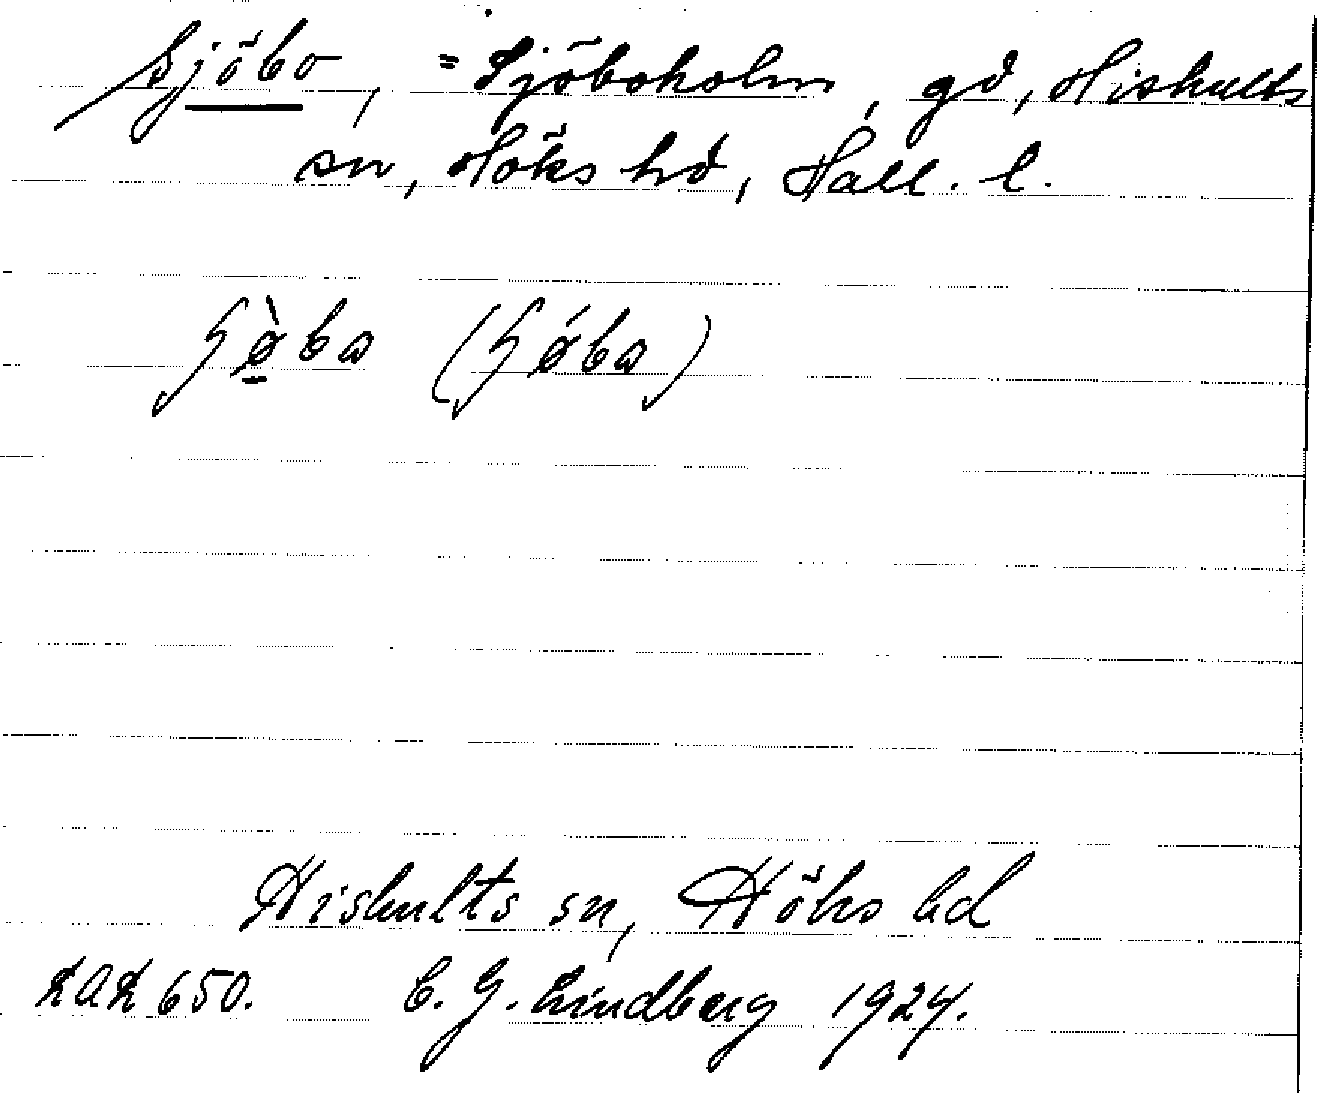 Sjöbo, = Sjöboholm, gd, Hishults
sn, Höks hd, Hall. l.
ɧø̱̀ba (ɧǿba)
Hishults sn, Höks hd
LAL 650. C. G. Lindberg 1924.